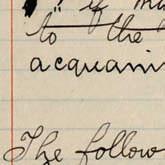 if
to the
acquain
The follow